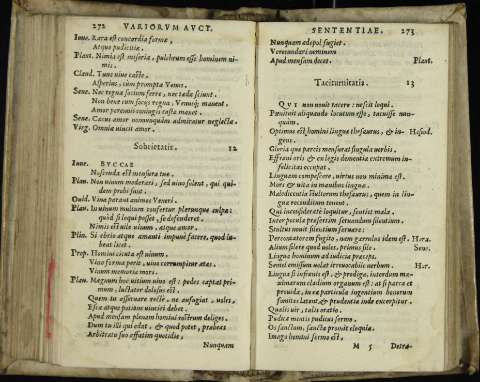 272 VARIORVM AVCT.
Iuue. Rara est concordia formæ,
Atque pudicitiæ.
Plaut. Nimia est miseria, pulchrum esse hominem ni-
mis.
Claud. Tunc viue castè.
Asperius, cùm prompta Venus.
Sene. Nec regna socium ferre, nec tædæ sciunt.
Non bene cum socijs regna, Venusq; manent.
Amor perennis coniugis castæ manet
Sene. Cæcus amor nonnunquam admiratur neglectæ.
Virg. Omnia vincit amor.
Sobrietatis. 12
Iuue. BVCCAE
Noscenda est mensura tuæ.
Plau. Non vinum moderari, sed vino solent, qui qui-
dem probi sunt.
Ouid. Vina parant animos Veneri.
Plau. In vinum multum conferetur plerunque culpa:
quòd si loqui posset, se defenderet.
Nimis est vile vinum, atque amor.
Plin. Si ebrio atque amanti impunè facere, quod lu-
beat licet.
Prop. Homini cicuta est vinum.
Vino forma perit, vino corrumpitur ætas.
Vinum memoriæ mors.
Plau. Magnum hoc vitium vino est: pedes captat pri-
mum, luctator dolosus est.
Quem tu assuruere vectè, ne aufugiat, voles,
Esca atque potione vinciri debet.
Apud mensam plenam homini rostrum deliges.
Dum tu illi qui edat, & quod potet, præbeas
Arbitratu suo affatim quotidie,
Nunquam
SENTENTIAE. 273
Nunquam ædepol fugiet.
Verecundari neminem
Apud mensam decet. Plaut.
Taciturnitatis. 13
QVI non nouit tacere: nescit loqui.
Pœnituit aliquando locutum esse, tacuisse nun-
quam.
Optimus est homini linguæ thesaurus, & in- Hesiod.
gens.
Gloria quæ parcis mensurat singula verbis.
Effræni oris & exlegis dementiæ extremum in-
felicitas occupat.
Linguam compescere, virtus non minima est.
Mors & vita in manibus linguæ.
Maledicentia stultorum thesaurus, quem in lin-
gua reconditum tenent.
Qui inconsideratè loquitur, sentiet mala.
Inter pocula præsertim seruandum silentium.
Stultus nouit silentium seruare:
Percontatorem fugito, nam garrulus idem est. Hora.
Alium silere quod voles, primus sile. Sene.
Lingua hominum ad iudicia præceps.
Semel emissum volat irreuocabile verbum. Hor.
Lingua si infrenis est, & prodiga, interdum ma-
ximarum cladium organum est: at si parca et
prouida, in ea particula ingentium bonorum
summitas latent, & prudentia inde excerpitur.
Qualis vir, talis oratio.
Pudicæ mentis pudicus sermo.
Os sanctum, sancta promit eloquia.
Imago hominis sermo est.
M 5 Detra-